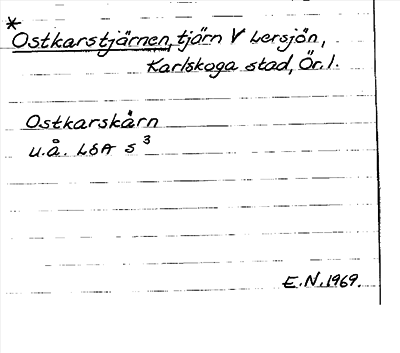 * Ostkarstjärnen, tjärn V Lersjön,
Karlskoga stad, Ör. l.
Ostkarskårn
u.å. LSA S 3
E.N. 1969.